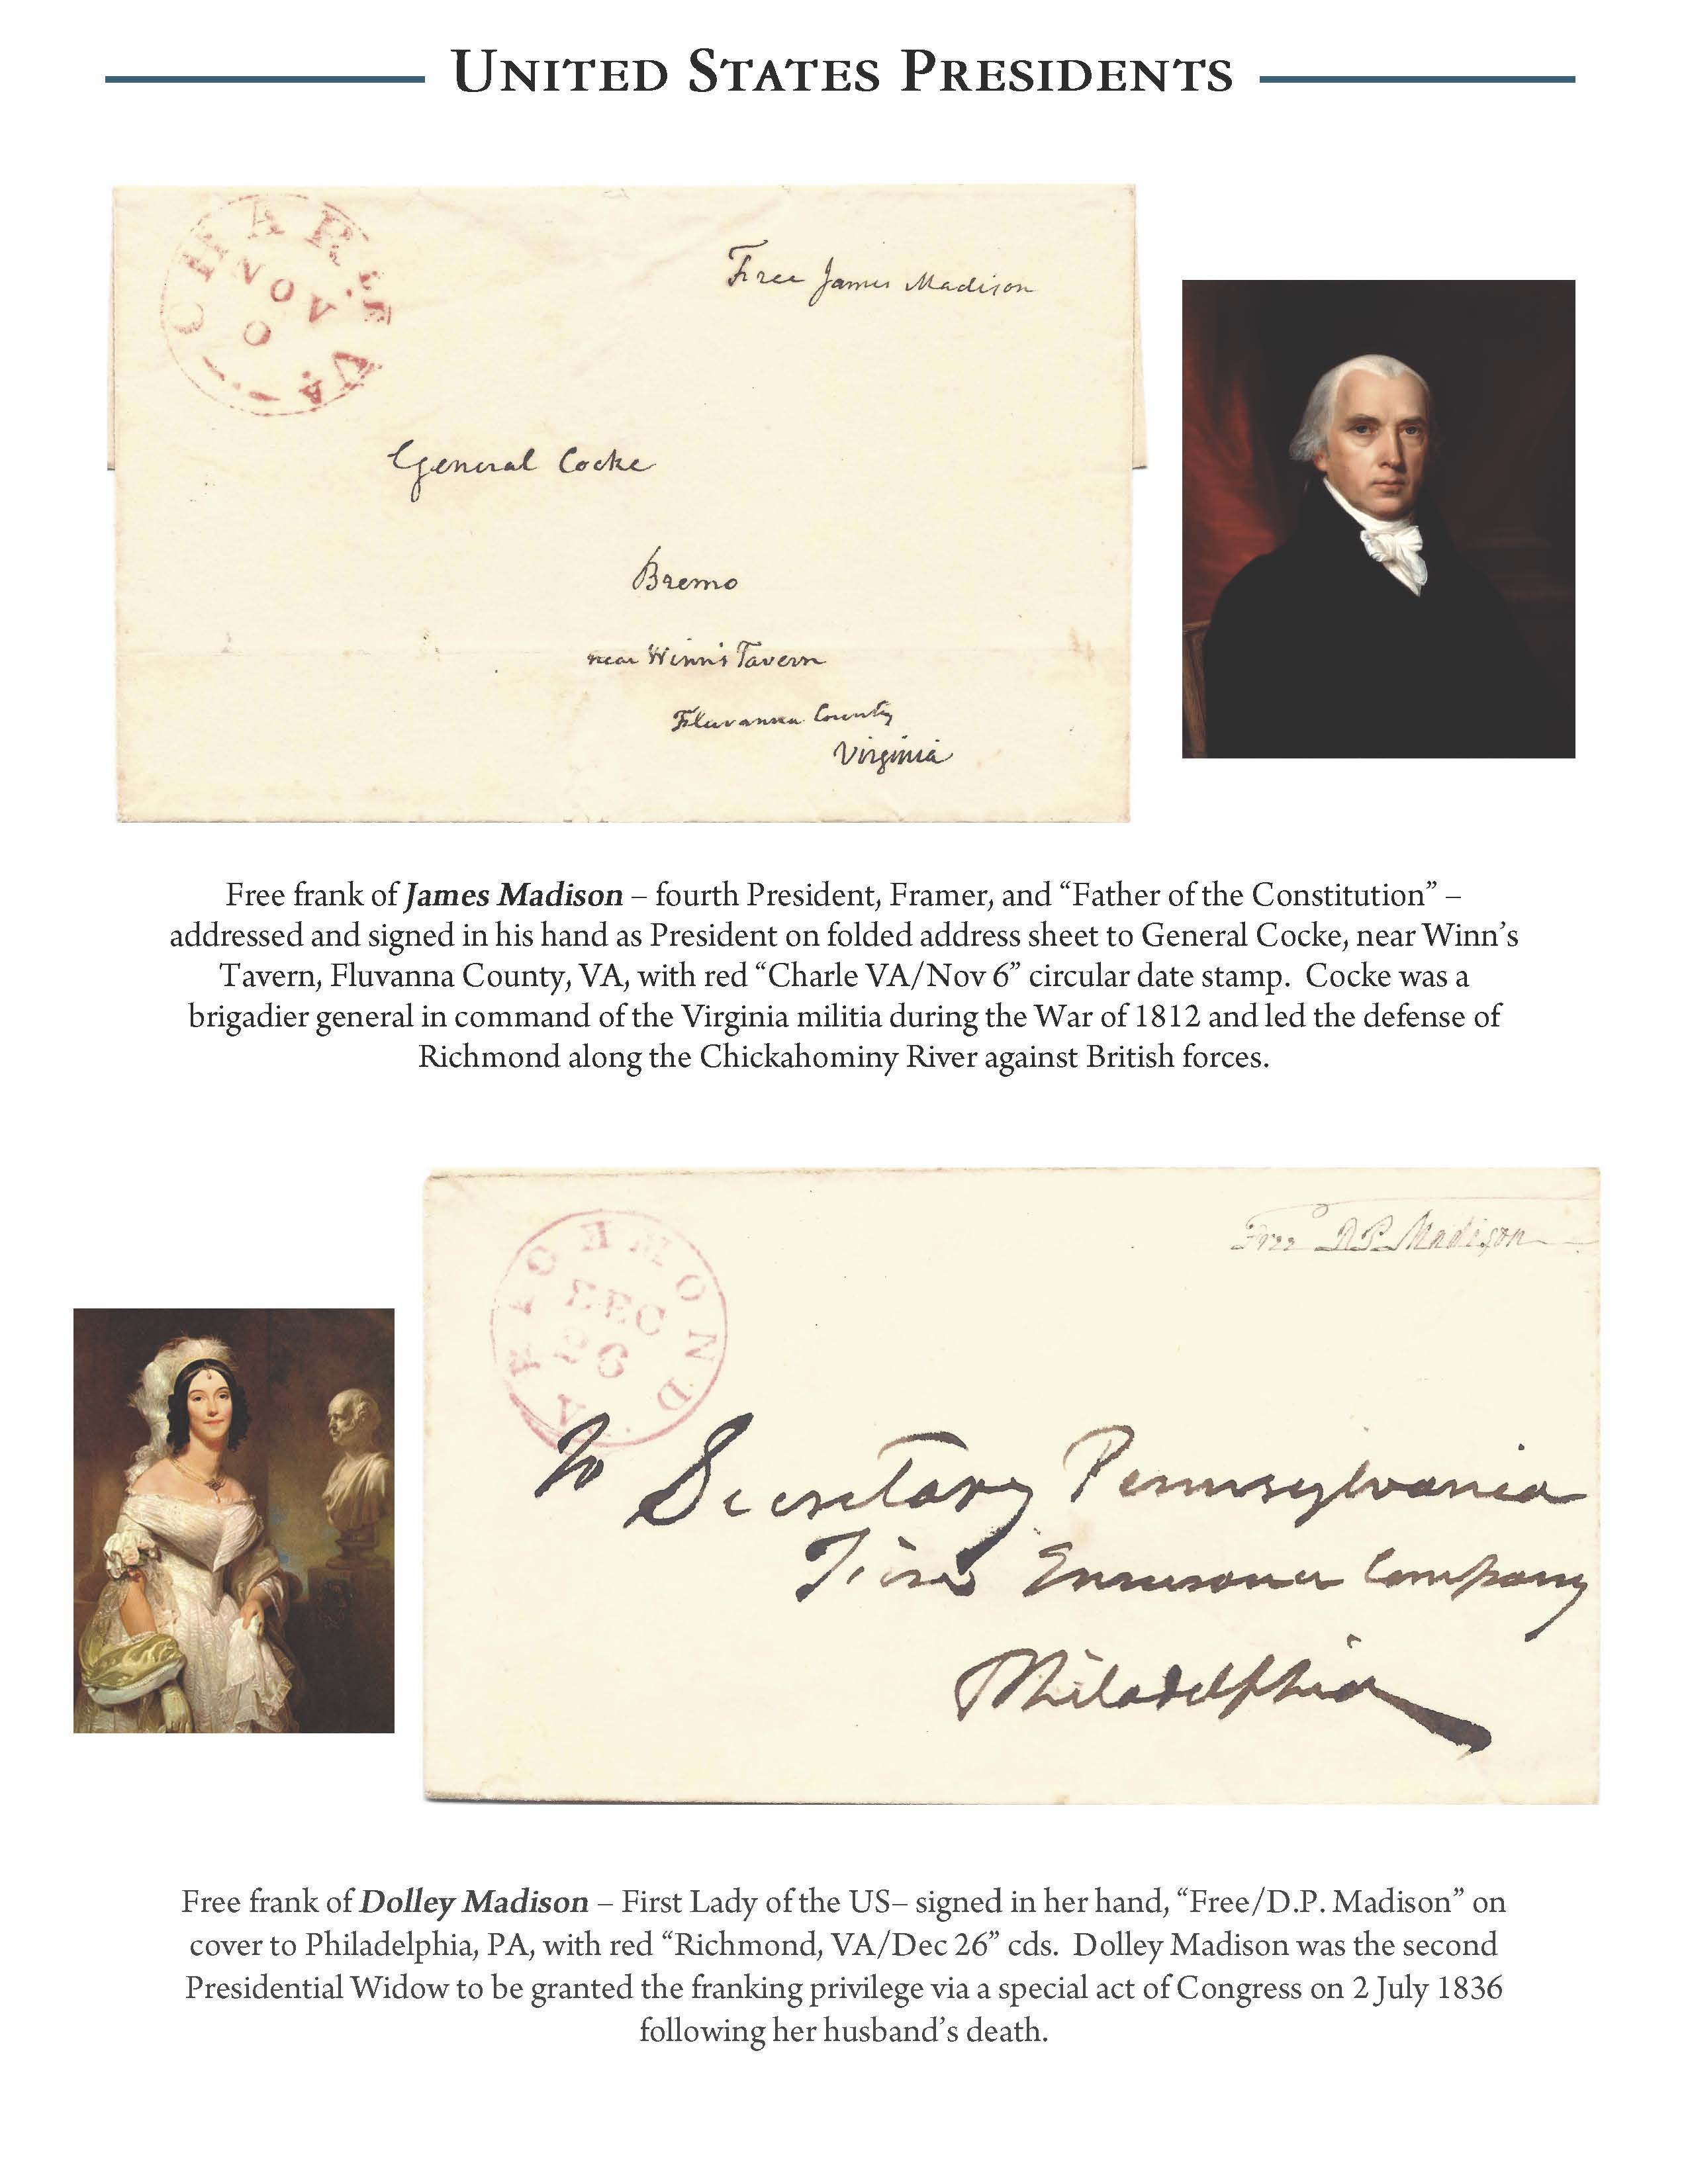 UNITED STATES PRESIDENTS
CHARLE VA
NOV
Free James Madison
General Cocke
Bremo
near Winn's Tavern
Fluvanna County
Virginia
Free frank of James Madison – fourth President, Framer, and “Father of the Constitution” –
addressed and signed in his hand as President on folded address sheet to General Cocke, near Winn’s
Tavern, Fluvanna County, VA, with red “Charle VA/Nov 6” circular date stamp. Cocke was a
brigadier general in command of the Virginia militia during the War of 1812 and led the defense of
Richmond along the Chickahominy River against British forces.
RICHMOND VA
DEC
Free D.P. Madison
To Secretary Pennsylvania
Fire Insurance Company
Philadelphia
Free frank of Dolley Madison – First Lady of the US– signed in her hand, “Free/D.P. Madison” on
cover to Philadelphia, PA, with red “Richmond, VA/Dec 26” cds. Dolley Madison was the second
Presidential Widow to be granted the franking privilege via a special act of Congress on 2 July 1836
following her husband’s death.